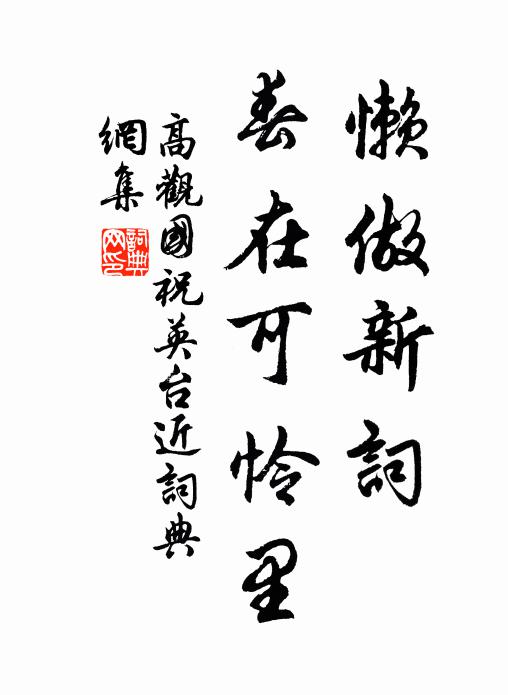 懶做新詞
春在可怜里
高觀國祝英台近詞典
網集
詞典
网印